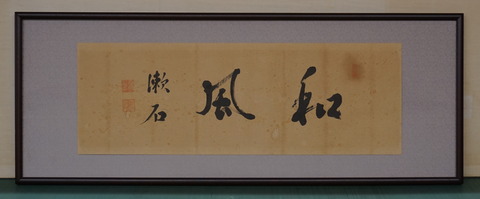 和風
漱石